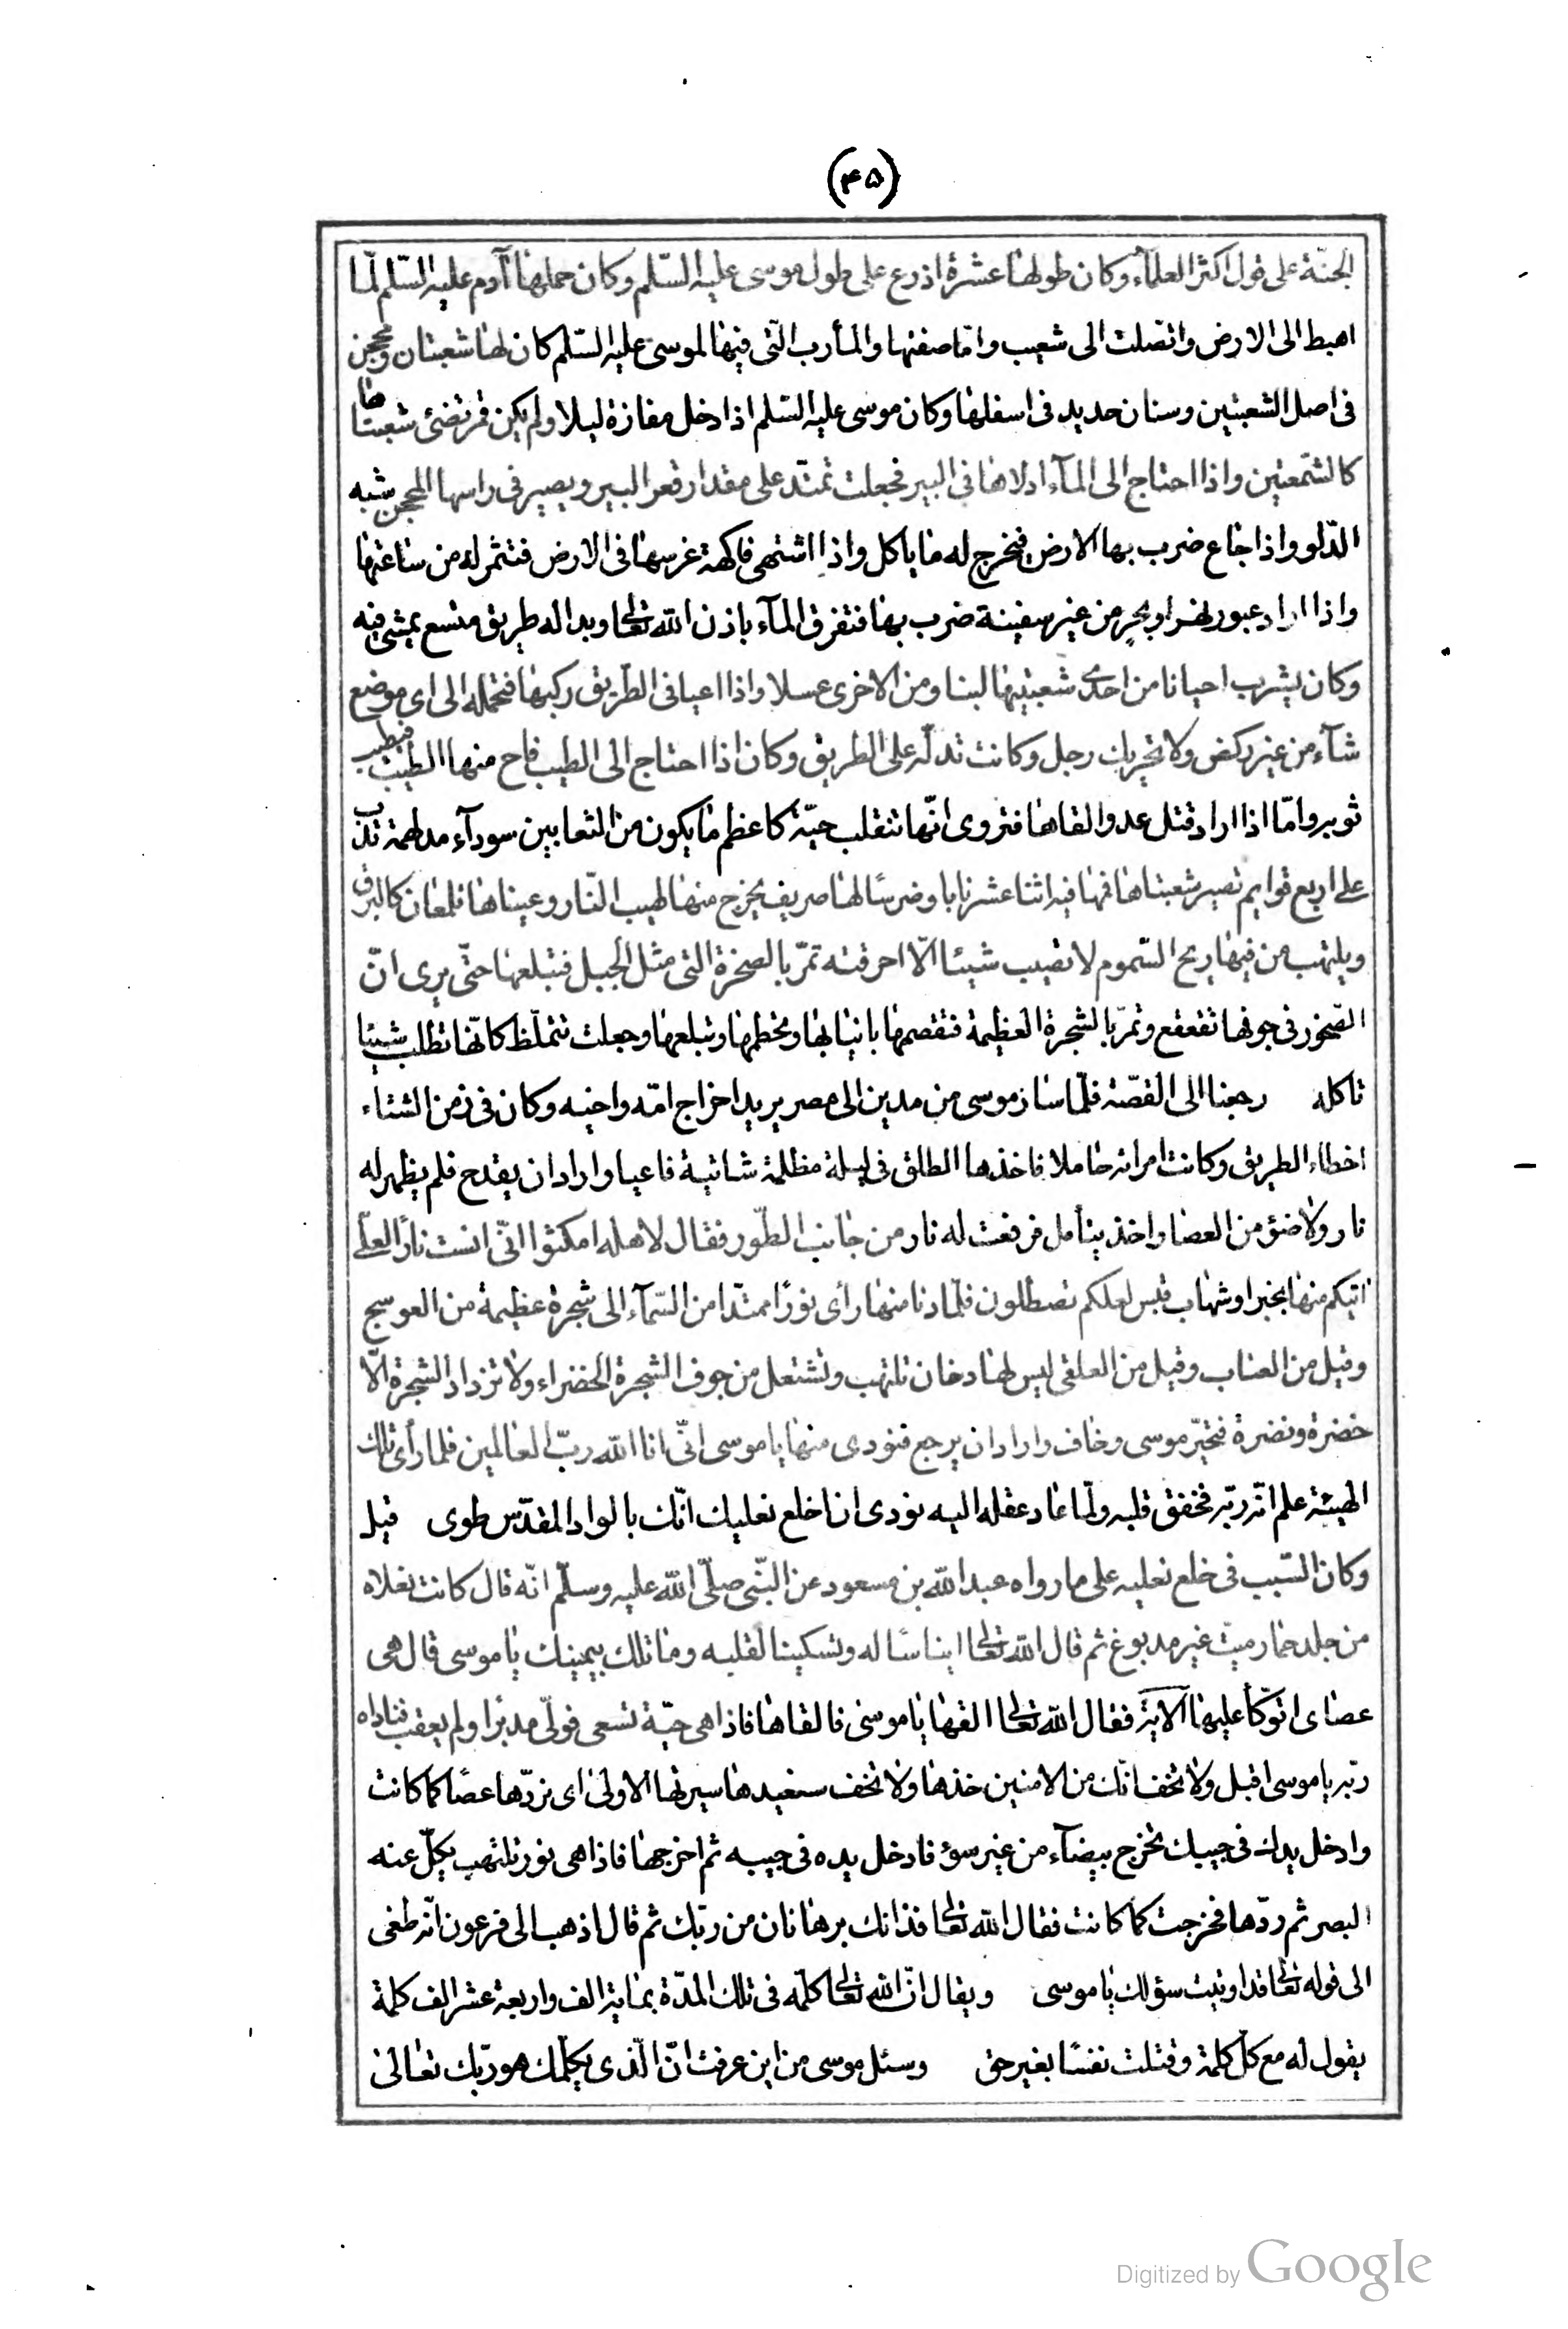 (۴۵)
الجنّة على قول اكثر العلمآء وكان طولها عشرة اذرع على طول موسى عليه السّلم وكان حملها آدم عليه السّلم لمّا
اهبط الى الارض واتّصلت الى شعيب وامّا صفتها والمأرب الّتى فيها لموسى عليه السّلم كان لها شعبتان ومحجن
فى اصل الشعبتين وسنان حديد فى اسفلها وكان موسى عليه السّلم اذا دخل مفازة ليلا ولم يكن قمر تضئ شعبتاها
كالشّمعتين واذا احتاج الى المآء ادلاها فى البير فجعلت تمتدّ على مقدار قعر البير ويصير فى راسها المحجن شبه
الدّلو واذا جاع ضرب بها الارض فيخرج له ما ياكل واذا اشتهى فاكهة غرسها فى الارض فتثمر له من ساعتها
واذا اراد عبور نهر او بحر من غير سفينة ضرب بها فتفرق المآء باذن الله تعالى وبدا له طريق متسع يمشى فيه
وكان يشرب احيانا من احدى شعبتيها لبنا ومن الاخرى عسلا واذا اعيا فى الطريق ركبها فتحمله الى اى موضع
شآء من غير ركض ولا تحريك رجل وكانت تدلّه على الطريق وكان اذا احتاج الى الطيب فاح منها الطيب فيطيب
ثوبه وامّا اذا اراد قتل عدو القاها فتروى انّها تنقلب حيّة كاعظم ما يكون من الثعابين سودآء مدلهمة تدبّ
على اربع قوايم تصير شعبتاها فمها فيه اثنا عشر نابا وضرسًا لها صريف يخرج منها لهيب النّار وعيناها تلمعان كالبرق
ويلتهب من فيها ريح السّموم لا تصيب شيئا الّا احرقته تمرّ بالصخرة التى مثل الجبل فتبلعها حتّى يرى انّ
الصّخور فى جوفها تتقعقع وتمرّ بالشجرة العظيمة فتقصمها بانيابها وتحطمها وتبلعها وجعلت تتملّظ كانّها تطلب شيئا
تاكله رجعنا الى القصّة فلمّا سار موسى من مدين الى مصر يريد اخراج امّه واخيه وكان فى زمن الشتاء
اخطاء الطريق وكانت امراته حاملا فاخذها الطلق فى ليلة مظلمة شاتية فاعيا واراد ان يقدح فلم يظهر له
نار ولا ضئو من العصا واخذ يتأمل فرفعت له نار من جانب الطّور فقال لاهله امكثوا انّى انست نارًا لعلّى
اتيكم منها بخبر او شهاب قبس لعلكم تصطلون فلمّا دنا منها رأى نورًا ممتدّا من السّمآء الى شجرة عظيمة من العوسج
وقيل من العناب وقيل من العلقى ليس لها دخان تلتهب وتشتعل من جوف الشجرة الخضراء ولا تزداد الشجرة الّا
خضرة ونضرة فتحيّر موسى وخاف واراد ان يرجع فنودى منها يا موسى انّى انا الله ربّ العالمين فلما رأى تلك
الهيئة علم انّه ربّه فخفق قلبه ولمّا عاد عقله اليه نودى ان اخلع نعليك انّك بالواد المقدّس طوى قيل
وكان السّبب فى خلع نعليه على ما رواه عبد الله بن مسعود عن النّبى صلّى الله عليه وسلّم انّه قال كانت نعلاه
من جلد حمار ميت غير مدبوغ ثم قال الله تعالى ايناسًا له وتسكينا لقلبه وما تلك بيمينك يا موسى قال هى
عصاى اتوكّأ عليها الآية فقال الله تعالى القها يا موسى فالقاها فاذا هى حيّة تسعى فولّى مدبرا ولم يعقب فناداه
ربّه يا موسى اقبل ولا تخف انّك من الامنين خذها ولا تخف سنعيدها سيرتها الاولى اى نردّها عصًا كما كانت
وادخل يدك فى جيبك تخرج بيضآء من غير سوء فادخل يده فى جيبه ثم اخرجها فاذا هى نور تلتهب يكلّ عنه
البصر ثم ردّها فخرجت كما كانت فقال الله تعالى فذانك برهانان من ربّك ثم قال اذهب الى فرعون انّه طغى
الى قوله تعالى قد اوتيت سؤلك يا موسى ويقال انّ الله تعالى كلّمه فى تلك المدّة بماية الف واربعة عشر الف كلمة
يقول له مع كلّ كلمة وقتلت نفسًا بغير حق وسئل موسى من اين عرفت انّ الّذى يكلّمك هو ربّك تعالى
Digitized by Google